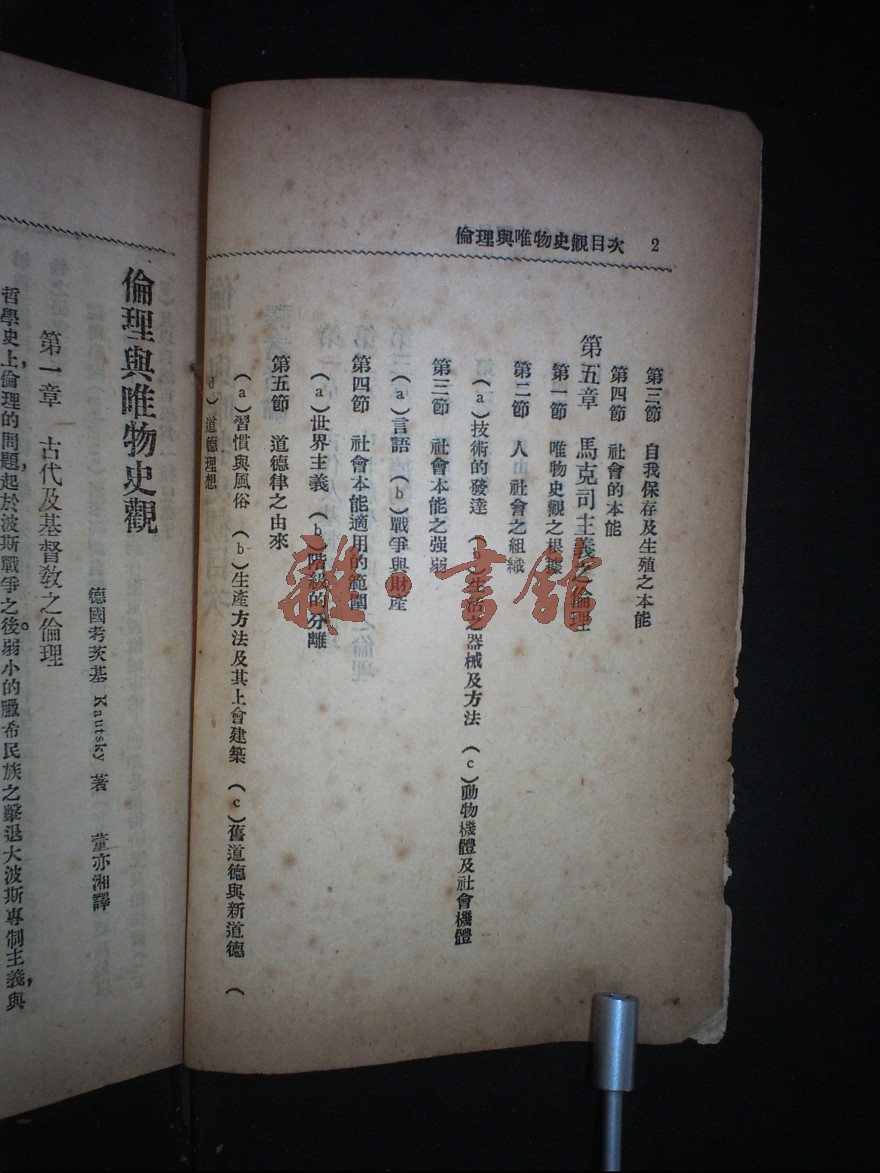 倫理與唯物史觀目次 2
第三節 自我保存及生殖之本能
第四節 社會的本能
第五章 馬克司主義之倫理
第一節 唯物史觀之根據
第二節 人 社會之組織
(a)技術的發達 (b)生活之器械及方法 (c)動物機體及社會機體
第三節 社會本能之强弱
(a)言語 (b)戰爭與財產
第四節 社會本能適用的範圍
(a)世界主義 (b)階級的分離
第五節 道德律之由來
(a)習慣與風俗 (b)生產方法及其上會建築 (c)舊道德與新道德 (
d)道德理想
倫理與唯物史觀
德國考茨基 Kautsky 著 董亦湘譯
第一章 古代及基督敎之倫理
哲學史上,倫理的問題,起於波斯戰爭之後。弱小的臘希民族之擊退大波斯專制主義,與
雜·書舘